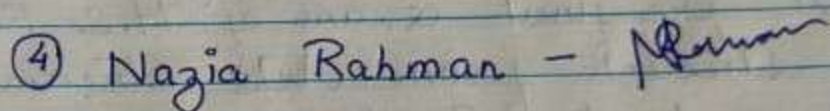 ④ Nazia Rahman -